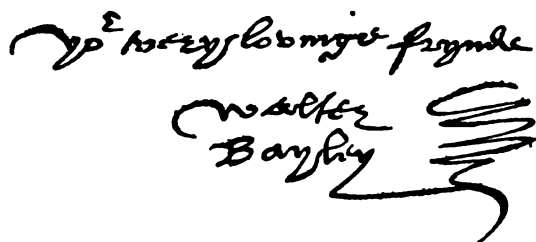 yor verey lovinge frynde
Walter
Bayley